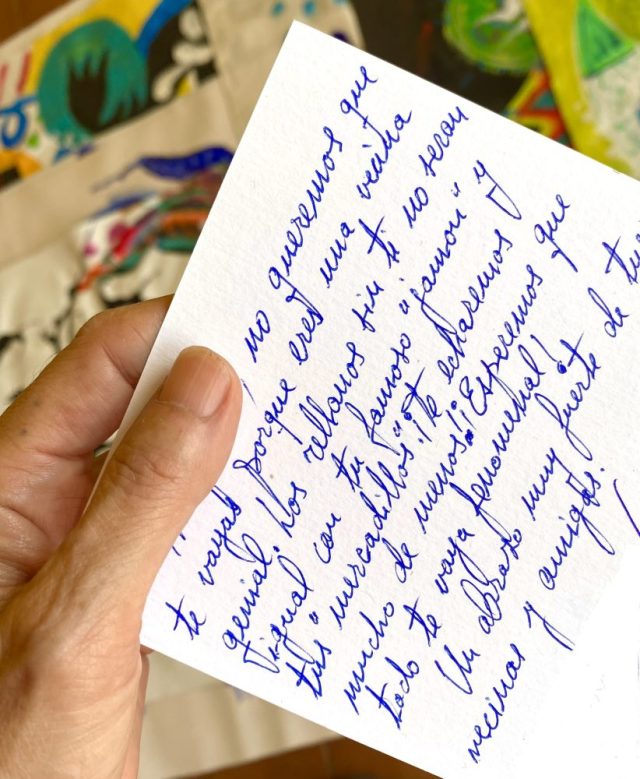 no queremos que
te vayas porque eres una vecina
genial. Los rellanos sin ti no seran
igual con tu famoso "jamón" y
tus "mercadillos". ¡Te echaremos
mucho de menos!! ¡Esperemos que
todo te vaya fenomenal!
Un abrazo muy fuerte de tus
vecinas y amigas.